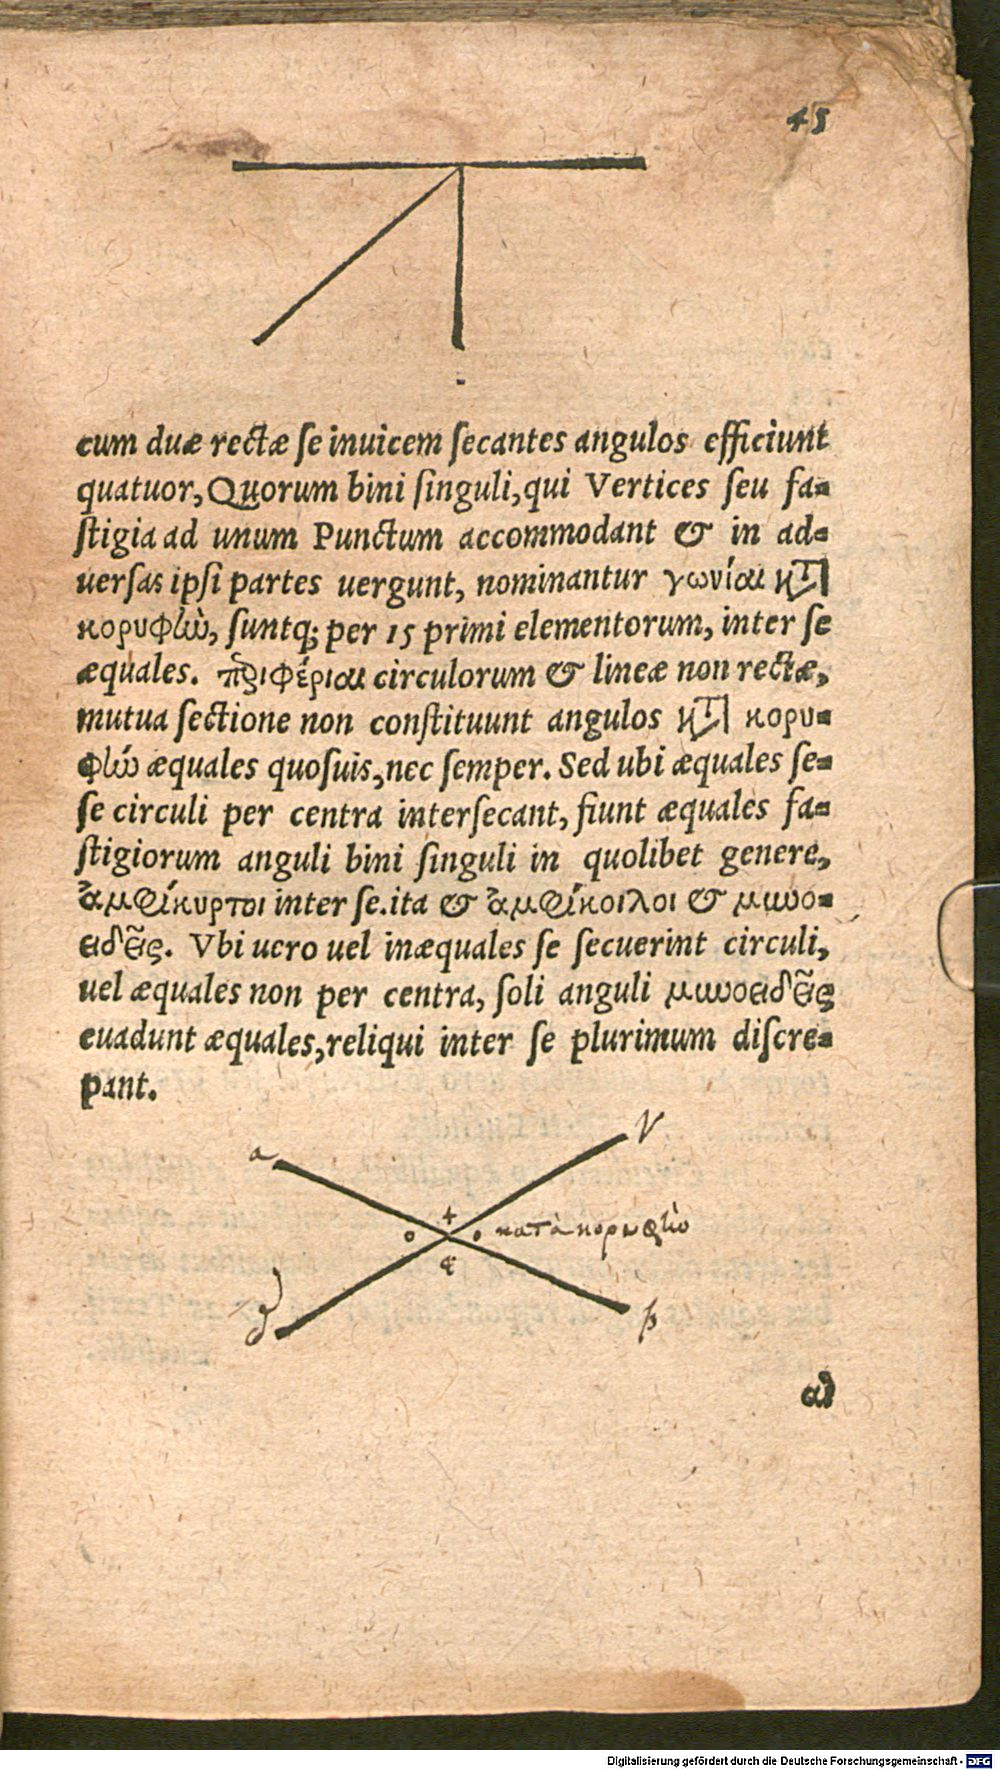 45
cum duæ rectæ ſe inuicem ſecantes angulos efficiunt
quatuor, Quorum bini ſinguli, qui Vertices ſeu fa-
ſtigia ad unum Punctum accommodant & in ad-
uerſas ipſi partes uergunt, nominantur γωνίαι κτ
κορυφὼ, ſuntq; per 15 primi elementorum, inter ſe
æquales. περιφέριαι circulorum & lineæ non rectæ,
mutua ſectione non conſtituunt angulos κτ κορυ-
φώ æquales quoſuis, nec ſemper. Sed ubi æquales ſe-
ſe circuli per centra interſecant, fiunt æquales fa-
ſtigiorum anguli bini ſinguli in quolibet genere,
ἀμφίκυρτοι inter ſe. ita & ἀμφίκοιλοι & μωο-
ειδεῖς. Vbi uero uel inæquales ſe ſecuerint circuli,
uel æquales non per centra, ſoli anguli μωοειδεῖς
euadunt æquales, reliqui inter ſe plurimum diſcre-
pant.
a γ
+
o o κατὰ κορυφὼ
δ β
ad
Digitalisierung gefördert durch die Deutsche Forschungsgemeinschaft - DFG